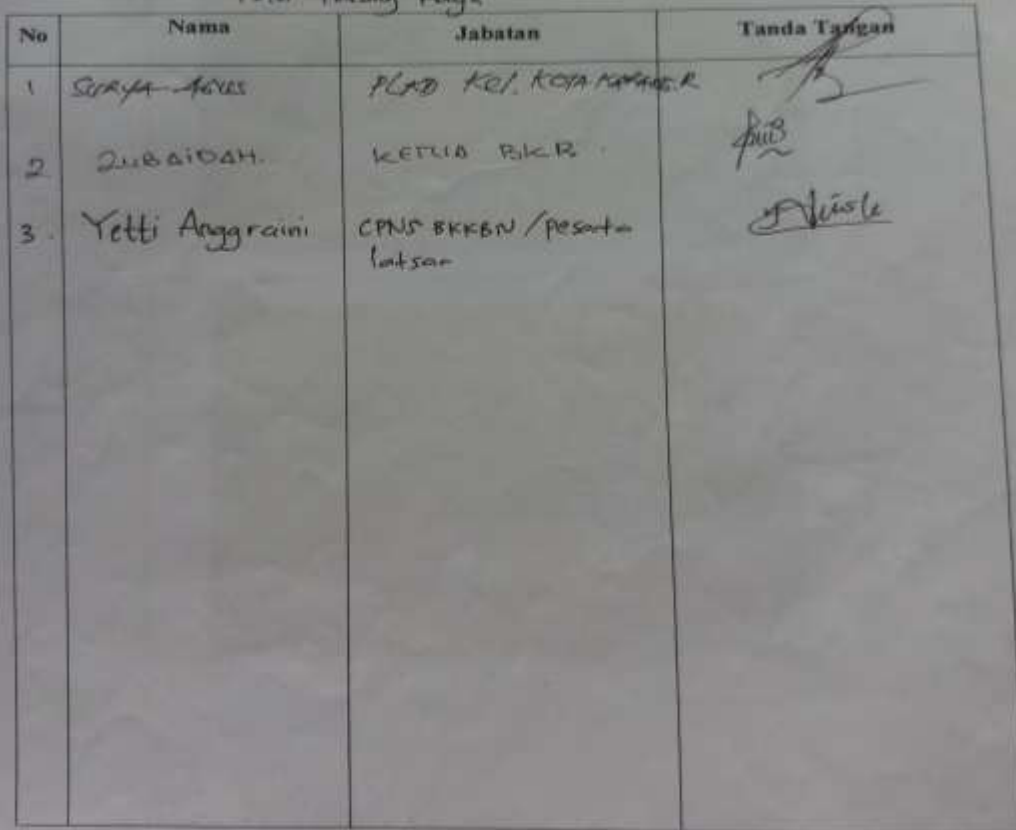 No Nama Jabatan Tanda Tangan
1 SURYA AGUS KEL. KOTA
2 ZUBAIDAH. KETUA BKR.
3. Yetti Anggraini CPNS BKKBN / peserta
latsar